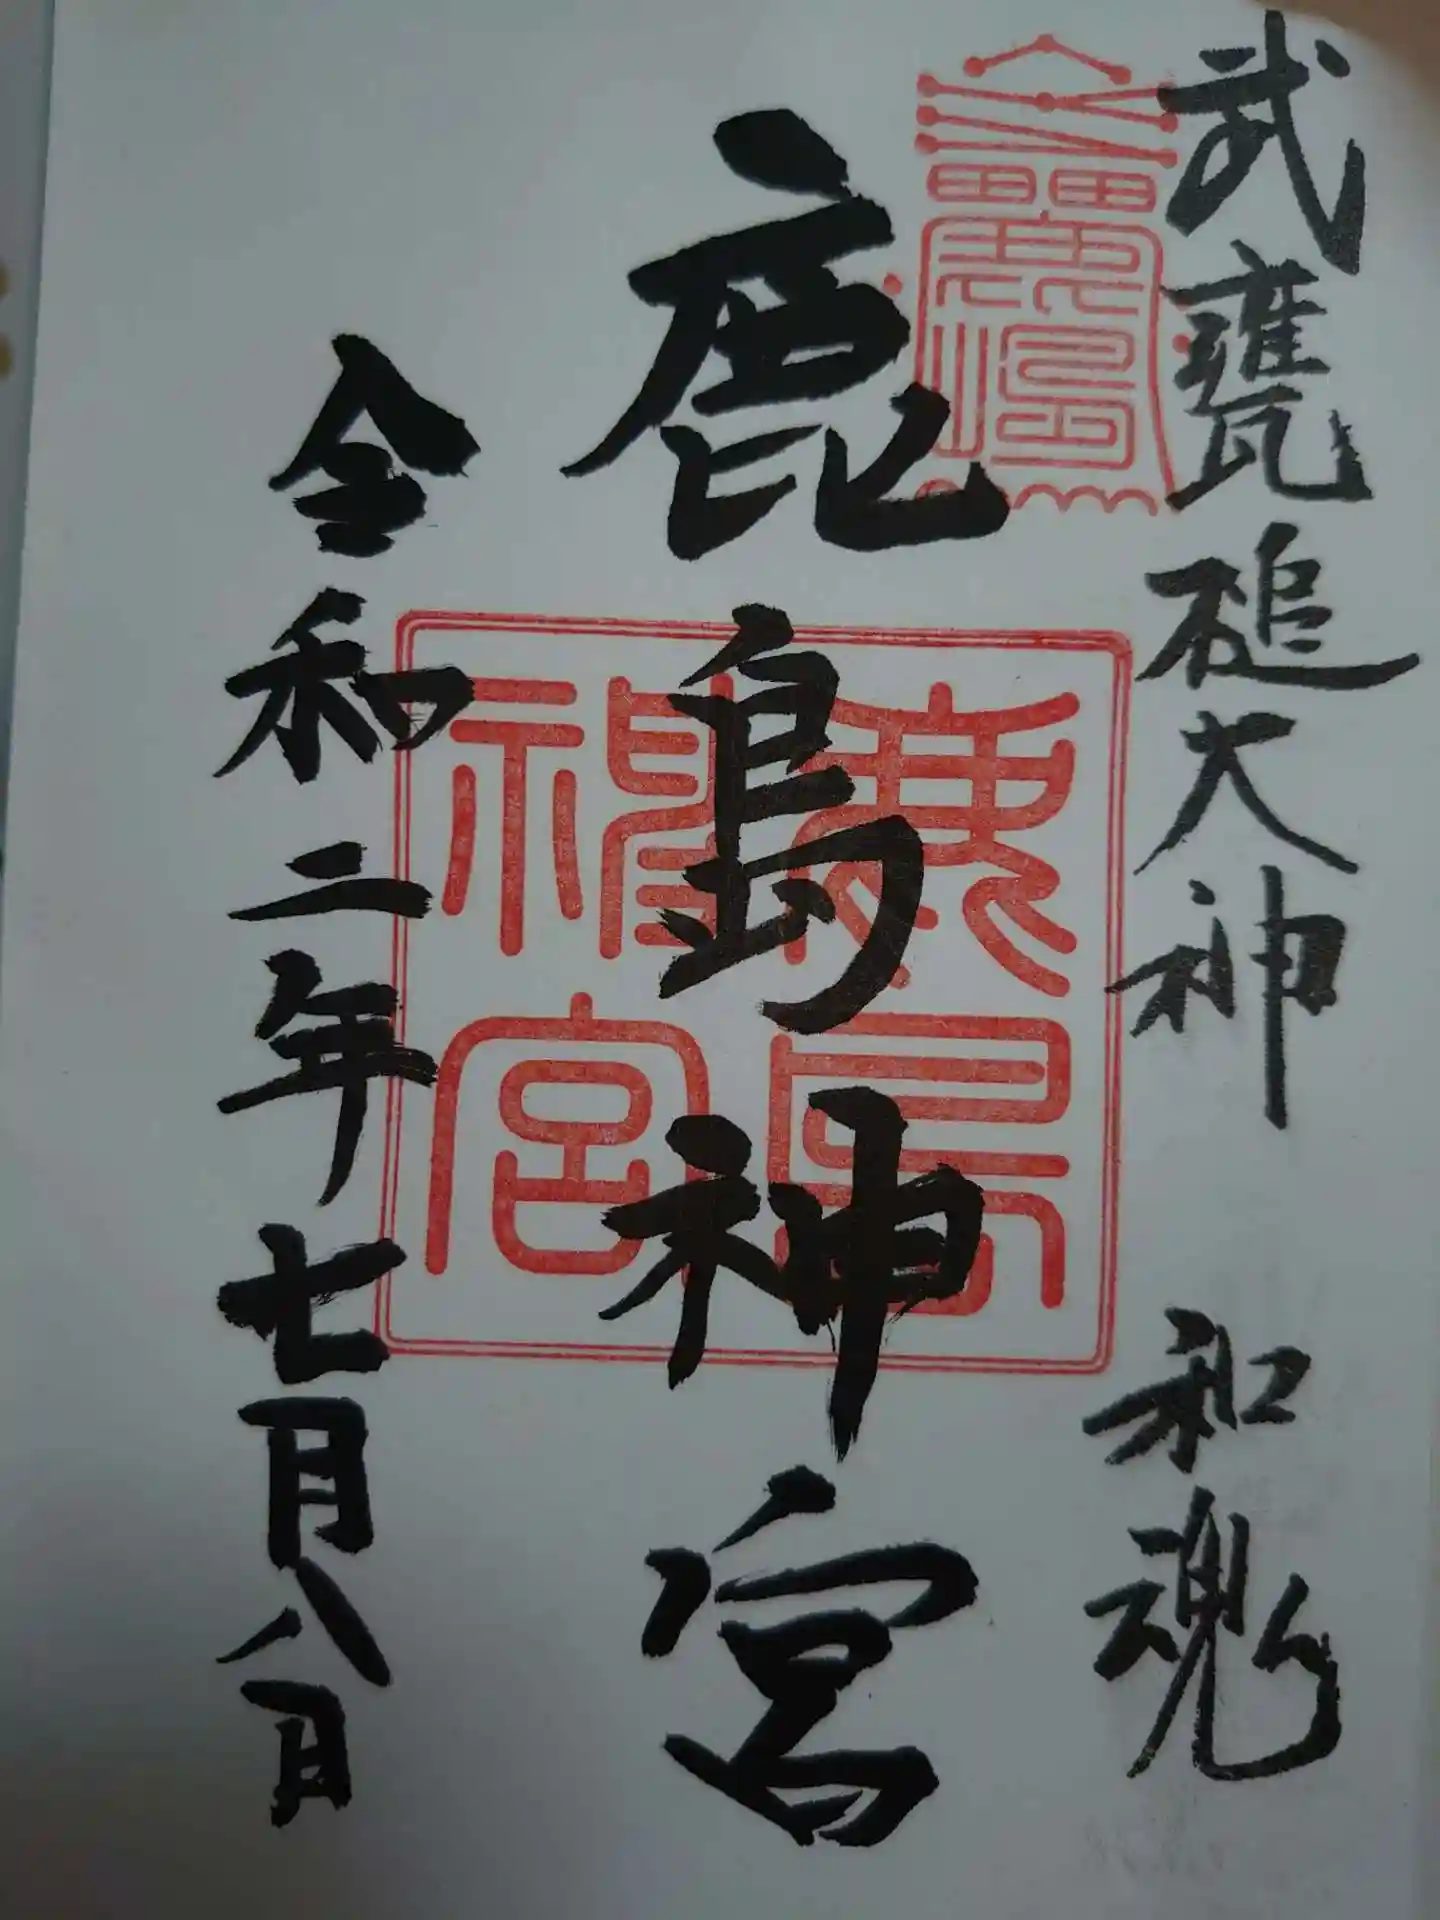 武甕槌大神 和魂
鹿島神宮
令和二年七月八日
鹿島神宮